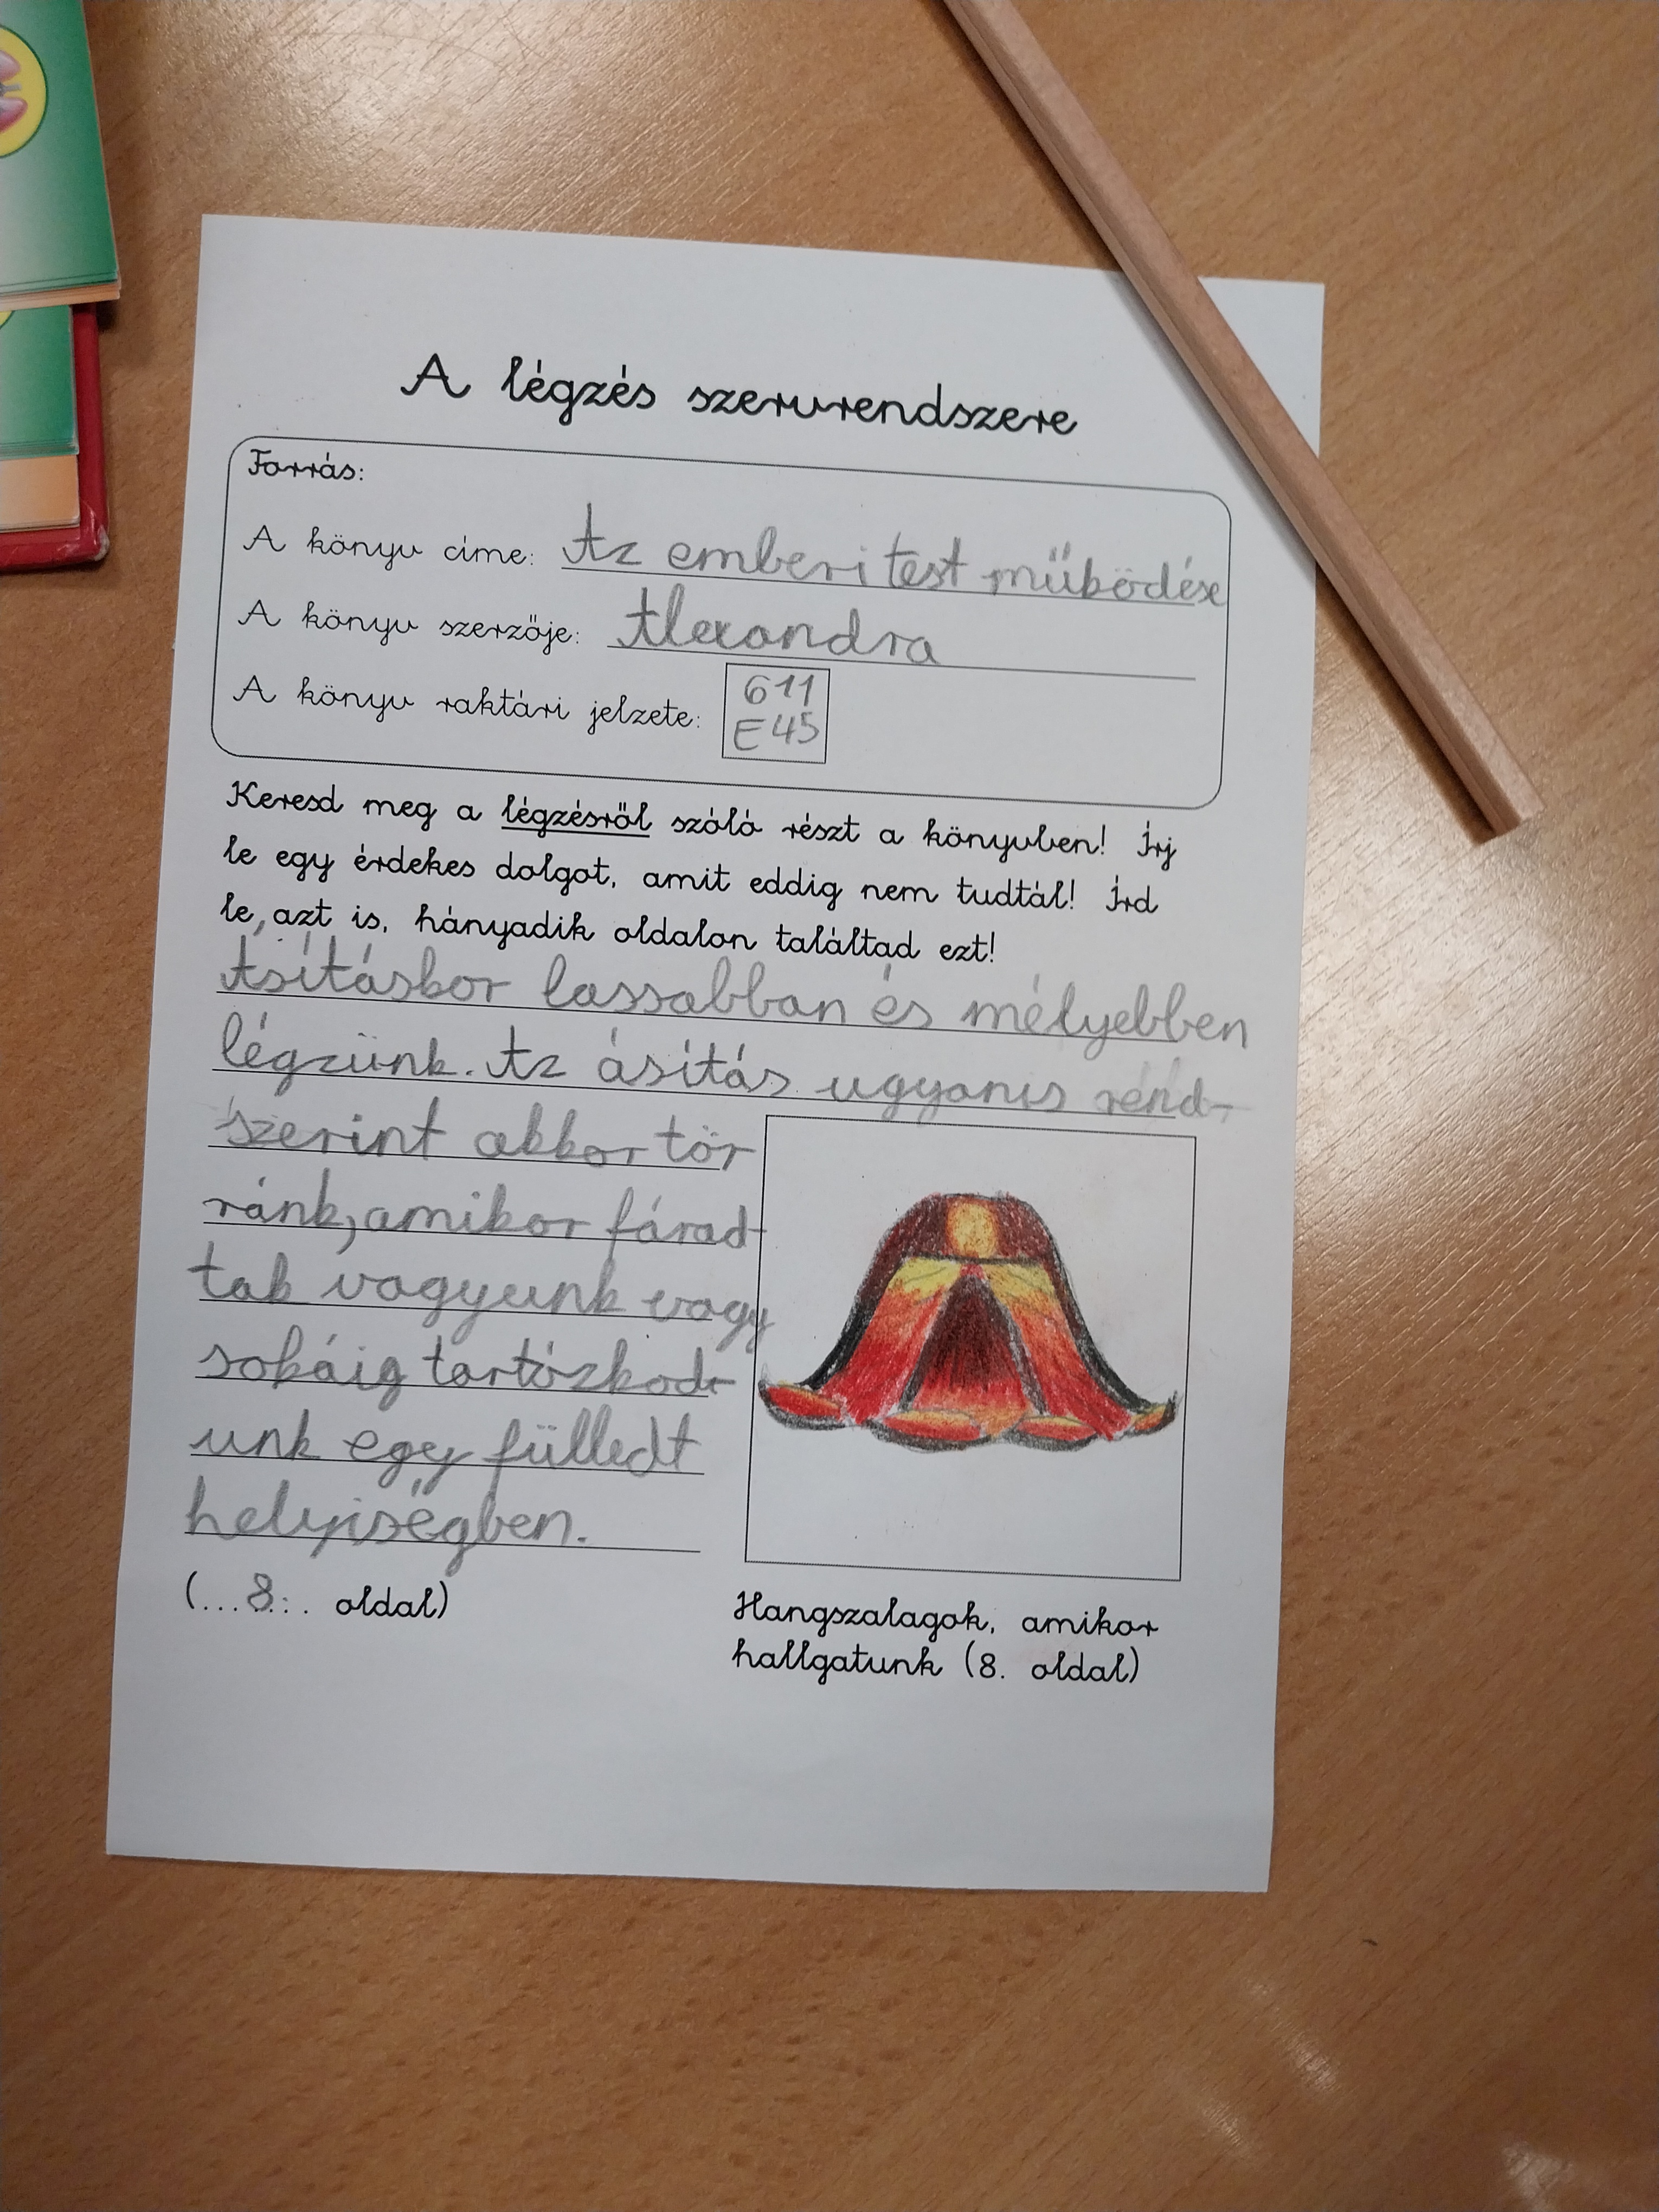 A légzés szervrendszere
Forrás:
A könyv címe: Az emberi test működése
A könyv szerzője: Alexandra
A könyv raktári jelzete: 611
E45
Keresd meg a légzésről szóló részt a könyvben! Írj
le egy érdekes dolgot, amit eddig nem tudtál! Írd
le azt is, hányadik oldalon találtad ezt!
Ásításkor lassabban és mélyebben
légzünk. Az ásítás ugyanis rend-
szerint akkor tör
ránk, amikor fárad-
tak vagyunk vagy
sokáig tartózkod-
unk egy fülledt
helyiségben.
(...8... oldal)
Hangszalagok, amikor
hallgatunk (8. oldal)